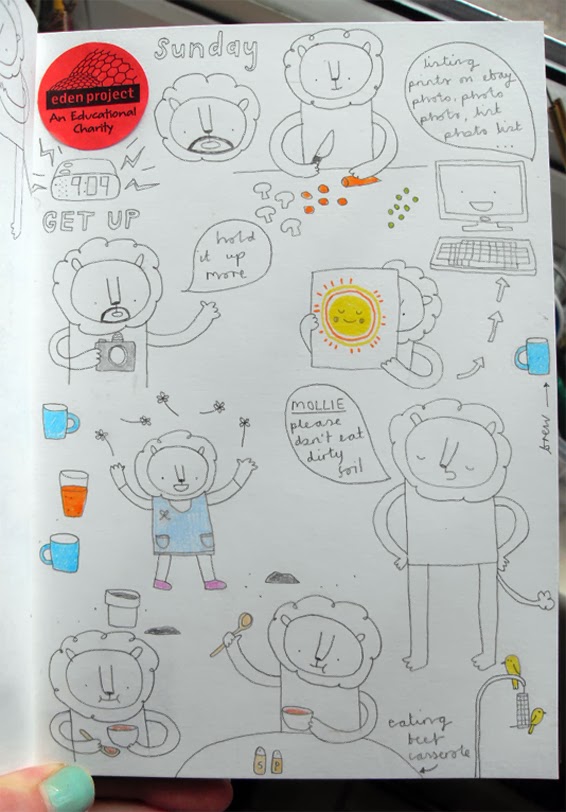 Sunday
eden project
An Educational
Charity
9:09
GET UP
listing
prints on ebay
photo, photo
photo, list
photo list
...
hold
it up
more
brew
MOLLIE
please
don't eat
dirty
soil
eating
beef
casserole
S P